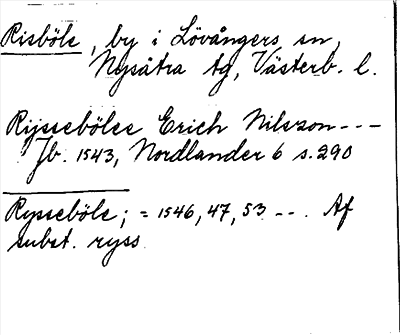 Risböle, by i Lövångers sn,
Nysåtra tg, Västerb. l.
Ryssebölee Erich Nilszon---
Jb. 1543, Nordlander 6 s. 290
Rysseböle; = 1546, 47, 53 --. Af
subst. ryss